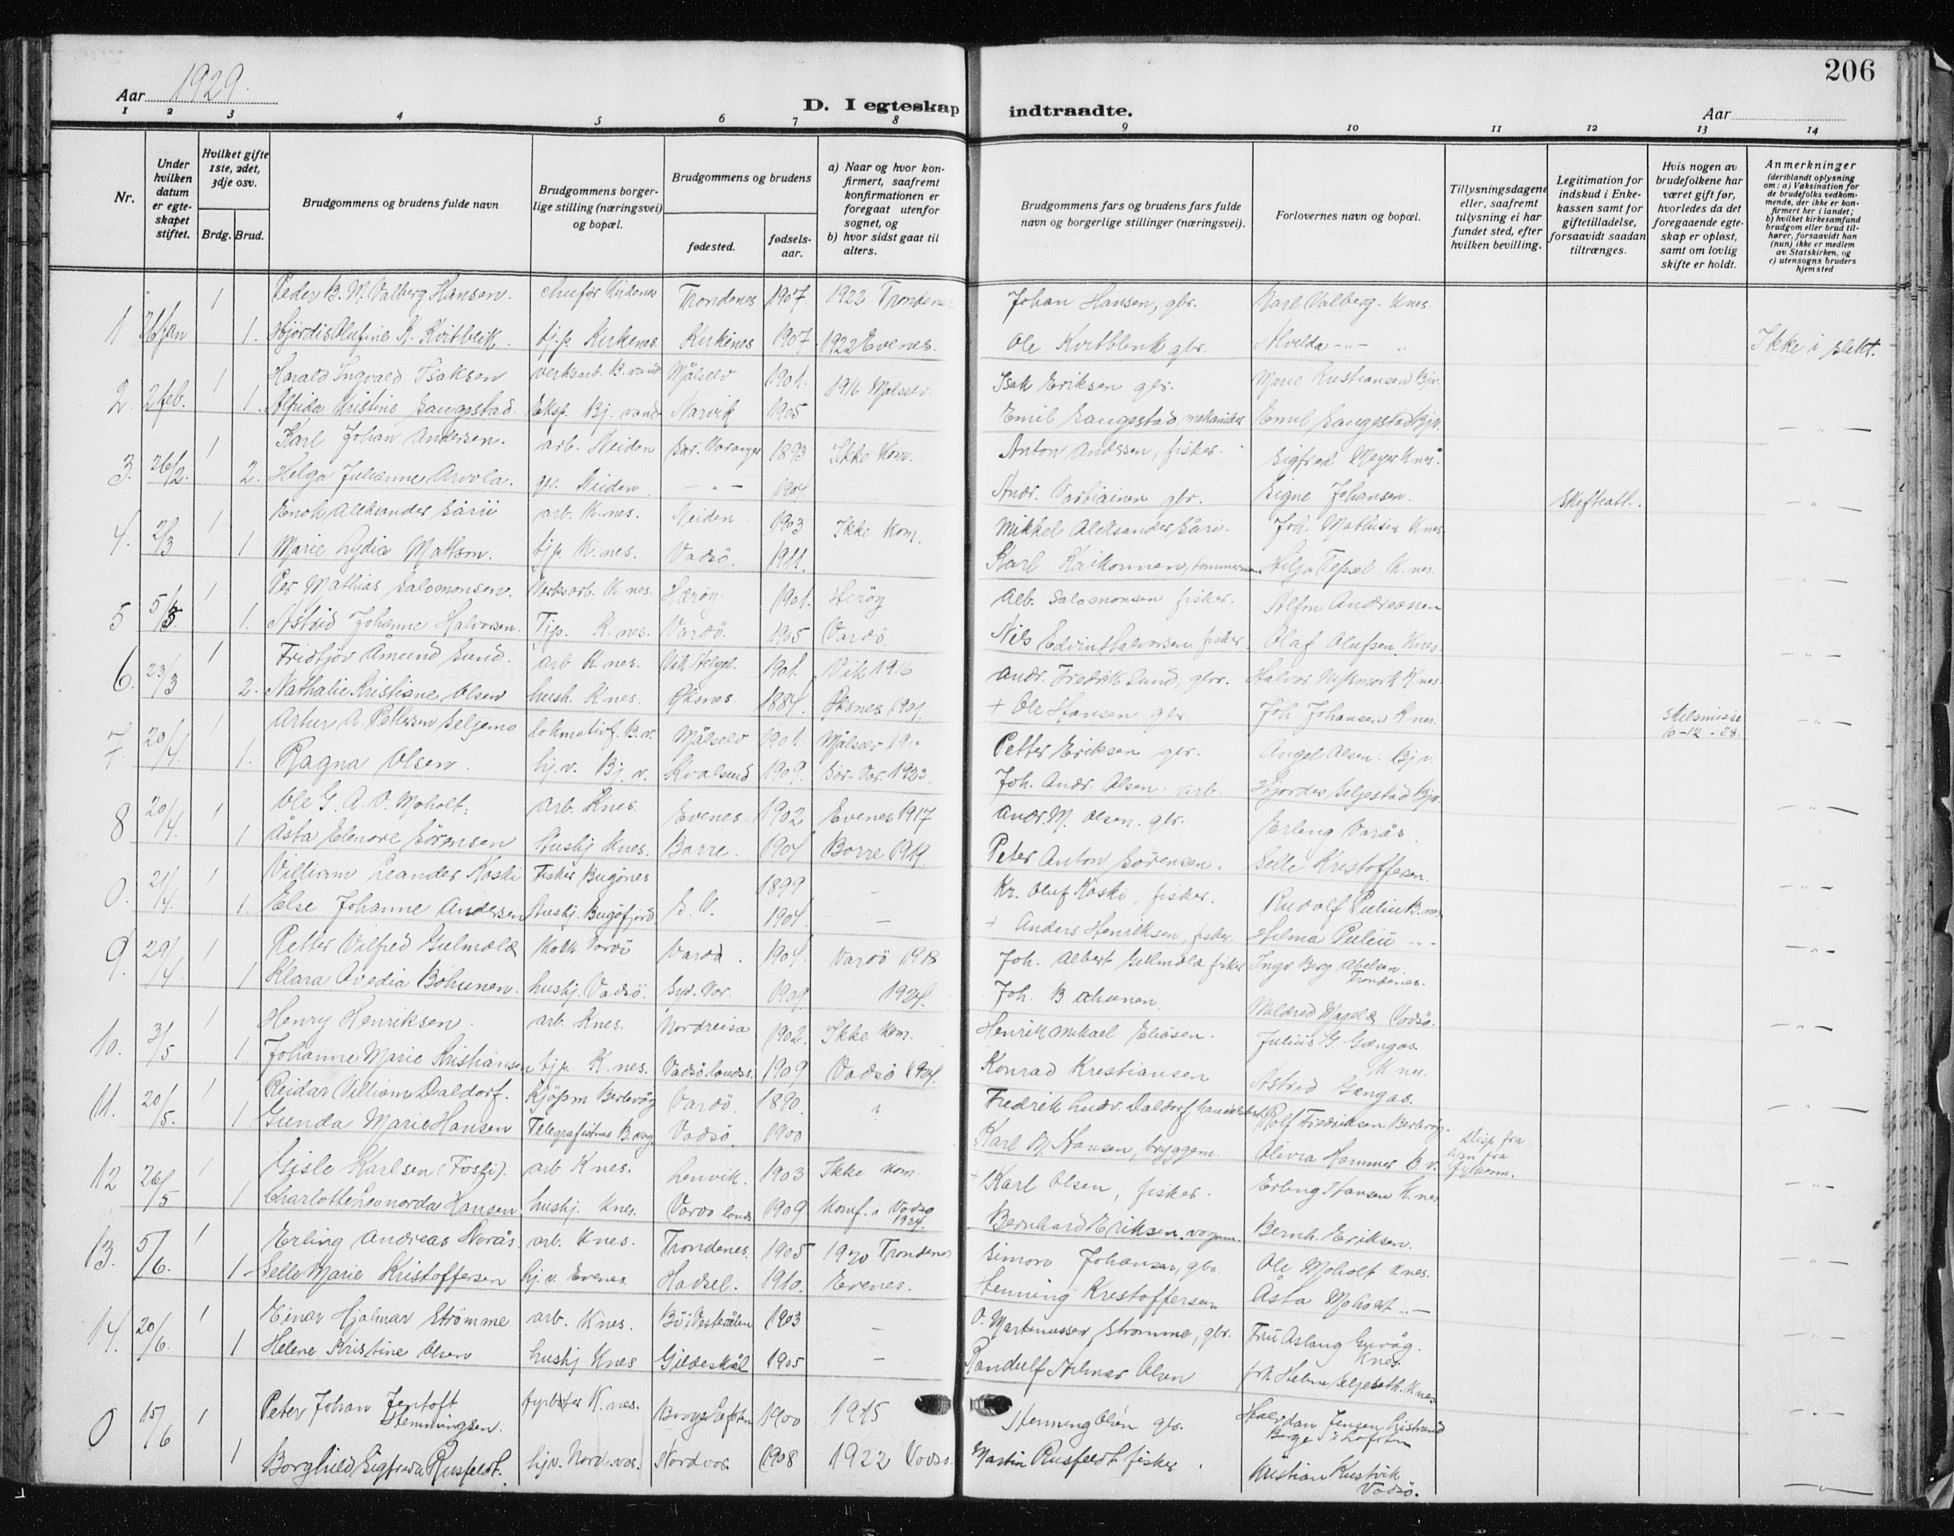 206
Aar 1929.
D. I egteskap indtraadte.
Aar
1 2 3 4 5 6 7 8 9 10 11 12 13 14
Nr.
Under hvilken datum er egteskapet stiftet.
Hvilket gifte 1ste, 2det, 3dje osv.
Brdg. Brud.
Brudgommens og brudens fulde navn
Brudgommens borgerlige stilling (næringsvei) og bopæl.
Brudgommens og brudens
fødested.
fødselsaar.
a) Naar og hvor konfirmert, saafremt konfirmationen er foregaat utenfor sognet, og
b) hvor sidst gaat til alters.
Brudgommens fars og brudens fars fulde navn og borgerlige stillinger (næringsvei).
Forlovernes navn og bopæl.
Tillysningsdagene eller, saafremt tillysning ei har fundet sted, efter hvilken bevilling.
Legitimation for indskud i Enkekassen samt for giftetilladelse, forsaavidt saadan tiltrænges.
Hvis nogen av brudefolkene har været gift før, hvorledes da det foregaaende egteskap er opløst, samt om lovlig skifte er holdt.
Anmerkninger
(deriblandt oplysning om: a) Vaksination for de brudefolks vedkommende, der ikke er konfirmert her i landet; b) hvilket kirkesamfund brudgom eller brud tilhører, forsaavidt han (hun) ikke er medlem av Statskirken, og c) utensogns bruders hjemsted
1 Peder B. M. Valberg Hansen. Trondenes 1907 1922 Trondenes Johan Hansen, gbr. Karl Valberg. Knes.
1 26/jan 1. Hjordis Olufine K. Kvitblik. tj.p. Kirkenes. Kirkenes 1907 1922 Evenes. Ole Kvitblik gbr. Alvilda -"- Ikke i slekt.
1 Harald Ingvald Isaksen verksarb. B. vand Målselv 1901. 1916 Målselv. Isak Eriksen gbr. Marie Kristiansen Bjv.
2. 2 feb. 1. Alfrida Kristine Saugestad. Eksp. Bj. vand Narvik 1905 Emil Saugestad mekaniker Emil Saugestad Bjv. -"-
1 Karl Johan Andersen. arb. Neiden Sør-Varanger 1893 Ikke kom. Anton Anderssen, fisker. Sigfred Meyer Knes.
3. 26/2. 2. Helga Julianne Arvola. gb. Neiden -"- 1904 Andr. Vartiainen gbr. Signe Johansen. Skifteatt. -"-
1 Enok Aleksander Särii arb. K.nes. Neiden. 1903 Ikke kom. Mikkel Aleksander Säri. Joh. Mathisen Knes
4. 2/3 1 Marie Lydia Mattson. tj.p. K.nes. Vadsö. 1911. Karl Kaikonnen, tømmerm. K.nes. -"-
1 Per Mathias Salomonsen. Verksarb. K.nes. Herøy. 1901. Herøy Alb. Salomonsen fisker. Alfon Andreassen
5 5/3 1. Astrid Johanne Halvorsen. Tjp. K.nes. Vardö. 1905 Vardö Nils Edvin Halvorsen fisker. Olaf Olufsen. Knes. -"-
1 Fridtjov Åmund Sund. arb K.nes. Vik Helgel. 1901. Vik 1916 Andr. Fredrik Sund, gbr. Halvor K.nes.
6. 23/3 2. Nathalie Kristiane Olsen hush. K.nes. Øksnes 1884. Øksnes 1901. + Ole Hansen gbr. Joh. Johansen K.nes. Skilsmisse 6-12-28. -"-
1 Artur A. Pettersen Seljemo lokomotivf. B.v. Målselv 1901. Målselv Petter Eriksen gbr. Angel Alsen. Bjv.
7. 20/4 1. Ragna Olsen. hj.v. Bj.v. Kvalsund 1909. Sør-Var. 1923. Joh. Andr. Olsen. arb. Hjordis Seljestad Bjv.
1 Ole G. A. V. Moholt. arb. Knes. Evenes. 1902 Evenes 1917 Andr. M. Olsen. gbr. Erling Varås. -"-
8 20/4. 1 Åsta Elenore Sörensen hushj. Knes. Borre. 1904 Borre 1919. Peter Anton Sörensen. Selle Kristoffersen.
1 Villiam Leander Koski Fisker Bugönes 1899 - Kr. Oluf Koski, fisker. Rudolf Puliu B.nes -"-
0. 21/4. 1. Else Johanne Andersen hushj. Bugöfjord S. V. 1904. - + Anders Henriksen, fisker. Hilma Puliu -"-
1 Petter Vilfred Gulmælæ Vardö Vardö. 1904. Vardö 1918 Joh. Albert Gulmæla fisker Trondenes. -"-
9. 29/4. 1 Klara Ovedia Bohunen. hushj. Vadsö. Syd. Var. 1909 1924. Joh. Bohunen. Mildred Vadsö.
1 Henry Henriksen. arb. Knes. Nordreisa 1902. Ikke kom. Henrik Mikael Eliasen. Julius G. Gængas. K.nes. -"-
10. 3/5 1 Johanne Marie Kristiansen tj.p. K.nes. Vadsö landss. 1909 Vadsö 1924. Konrad Kristiansen Astrid Gængas.
1 Reidar Villiam Daldorf. Kjöpm Berlevåg Vardö. 1890. " Fredrik Ludv. Daldorf handelsbest. Rolf Fredriksen Berlevåg. -"-
11. 20/5. 1 Gunda Marie Hansen Telegrafistinne B.våg Vadsö. 1900 Karl M. Hansen, bryggem. Olivia Hammer B.v. Disp fra lysn fra fylkesm.
12 26/5 1 Gisle Karlsen (Fosli). arb Knes. Lenvik. 1903 Ikke kom. + Karl Olsen, fisker. Erling Hansen K.nes -"-
1 Charlotte Leonorda Hansen hushj. Knes. Vardö lands 1909 Konf. i Vadsö 1924. Bernhard Eriksen. vognm. Bernh. Eriksen.
1 Erling Andreas Varås. arb. Knes. Trondenes. 1905 1920 Trondenes Simon Johansen, gbr. Ole Moholt Knes. -"-
13. 5/6. 1 Selle Marie Kristoffersen hj.v. Evenes. Hadsel. 1910. Evenes. Henning Kristoffersen Åsta Moholt -"-
1 Einar Hjalmar Strømme arb. Knes. Bö i Vesterålen 1903 - O. Martinussen Strømme, gbr. Fru Aslaug Knes.
14. 20/6. 1 Helene Kristine Olsen hushj Knes Gildeskål 1905 - Randulf Hilmar Olsen frk. Helene K.nes -"-
1 Peter Johan Jentoft Hemmingsen. K.nes. 1900 1915 Henning Olsen gbr. Halvdan Jensen
0 15/6 1 Borghild Sigfreda Rusfeldt. hj.v. Nord.var. Nordvar. 1908 1922 Vadsö. Martin Rusfeldt fisker. Kristian Kustvik Vadsö. -"-